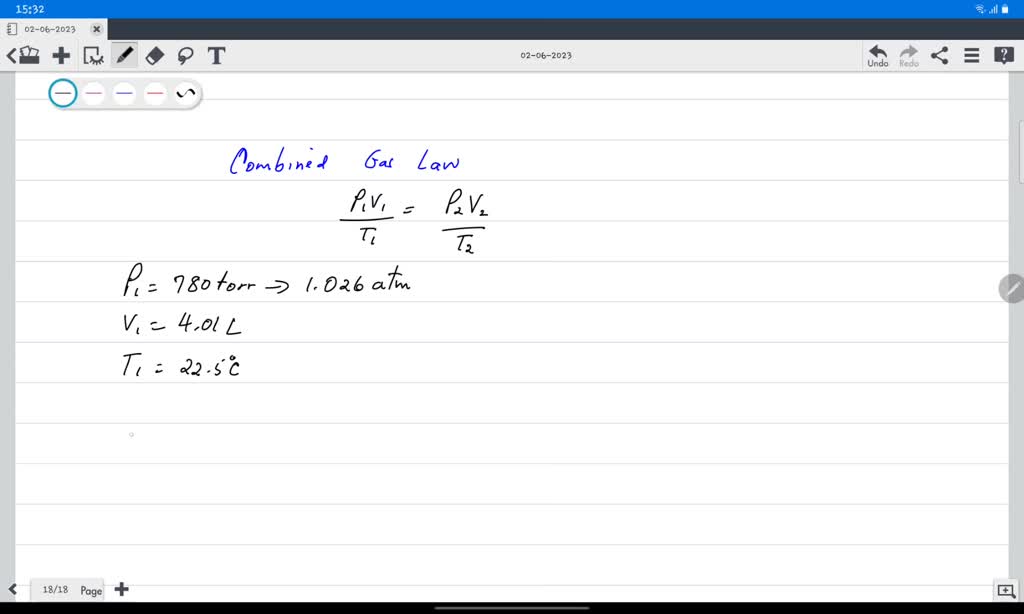 15:32
02-06-2023
T
02-06-2023
Undo
Redo
?
Combined Gas Law
P₁V₁/T₁ = P₂V₂/T₂
P₁ = 780 torr → 1.026 atm
V₁ = 4.01 L
T₁ = 22.5°C
18/18 Page